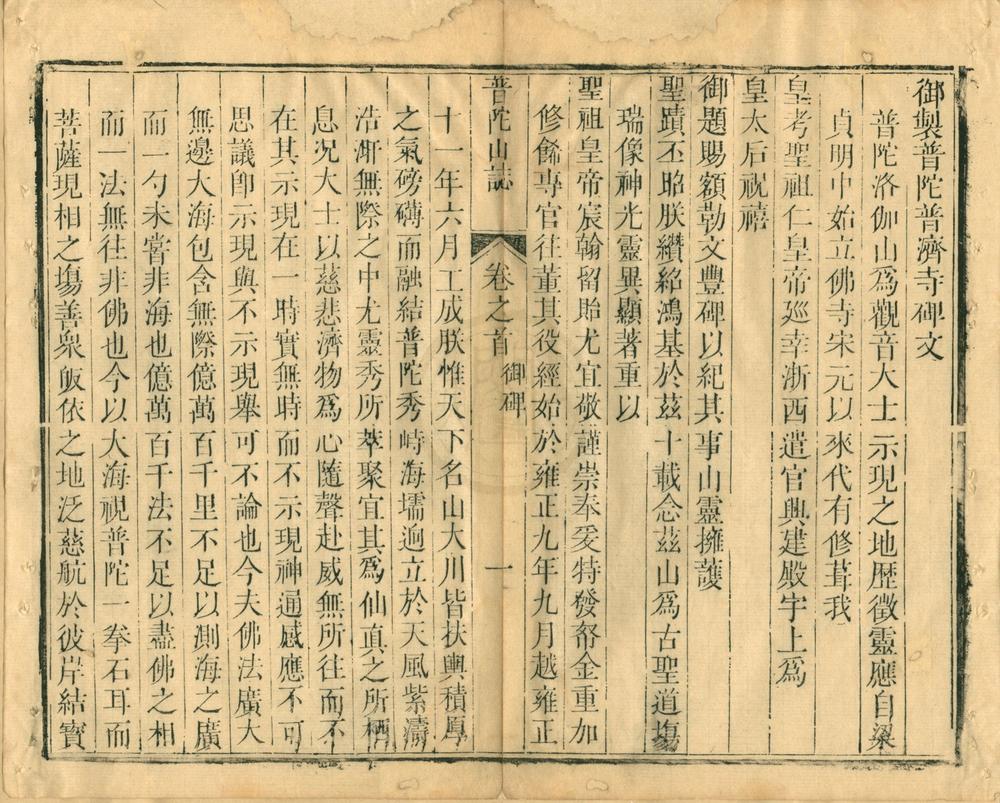 御製普陀普濟寺碑文
普陀洛伽山爲觀音大士示現之地歷徵靈應自梁
貞明中始立佛寺宋元以來代有修葺我
皇考聖祖仁皇帝廵幸浙西遣官興建殿宇上爲
皇太后祝禧
御題賜額勒文豐碑以紀其事山靈擁護
聖蹟丕昭朕纘紹鴻基於茲十載念茲山爲古聖道塲
瑞像神光靈異顯著重以
聖祖皇帝宸翰留貽尤宜敬謹崇奉爰特發帑金重加
修餙專官往董其役經始於雍正九年九月越雍正
普陀山誌
卷之首
御碑
一
十一年六月工成朕惟天下名山大川皆扶輿積厚
之氣磅礴而融結普陀秀峙海壖逈立於天風紫濤
浩渺無際之中尤靈秀所萃聚宜其爲仙眞之所栖
息况大士以慈悲濟物爲心隨聲赴威無所往而不
在其示現在一時實無時而不示現神通感應不可
思議卽示現與不示現舉可不論也今夫佛法廣大
無邊大海包含無際億萬百千里不足以測海之廣
而一勺未嘗非海也億萬百千法不足以盡佛之相
而一法無往非佛也今以大海視普陀一拳石耳而
菩薩現相之塲善衆皈依之地泛慈航於彼岸結寶